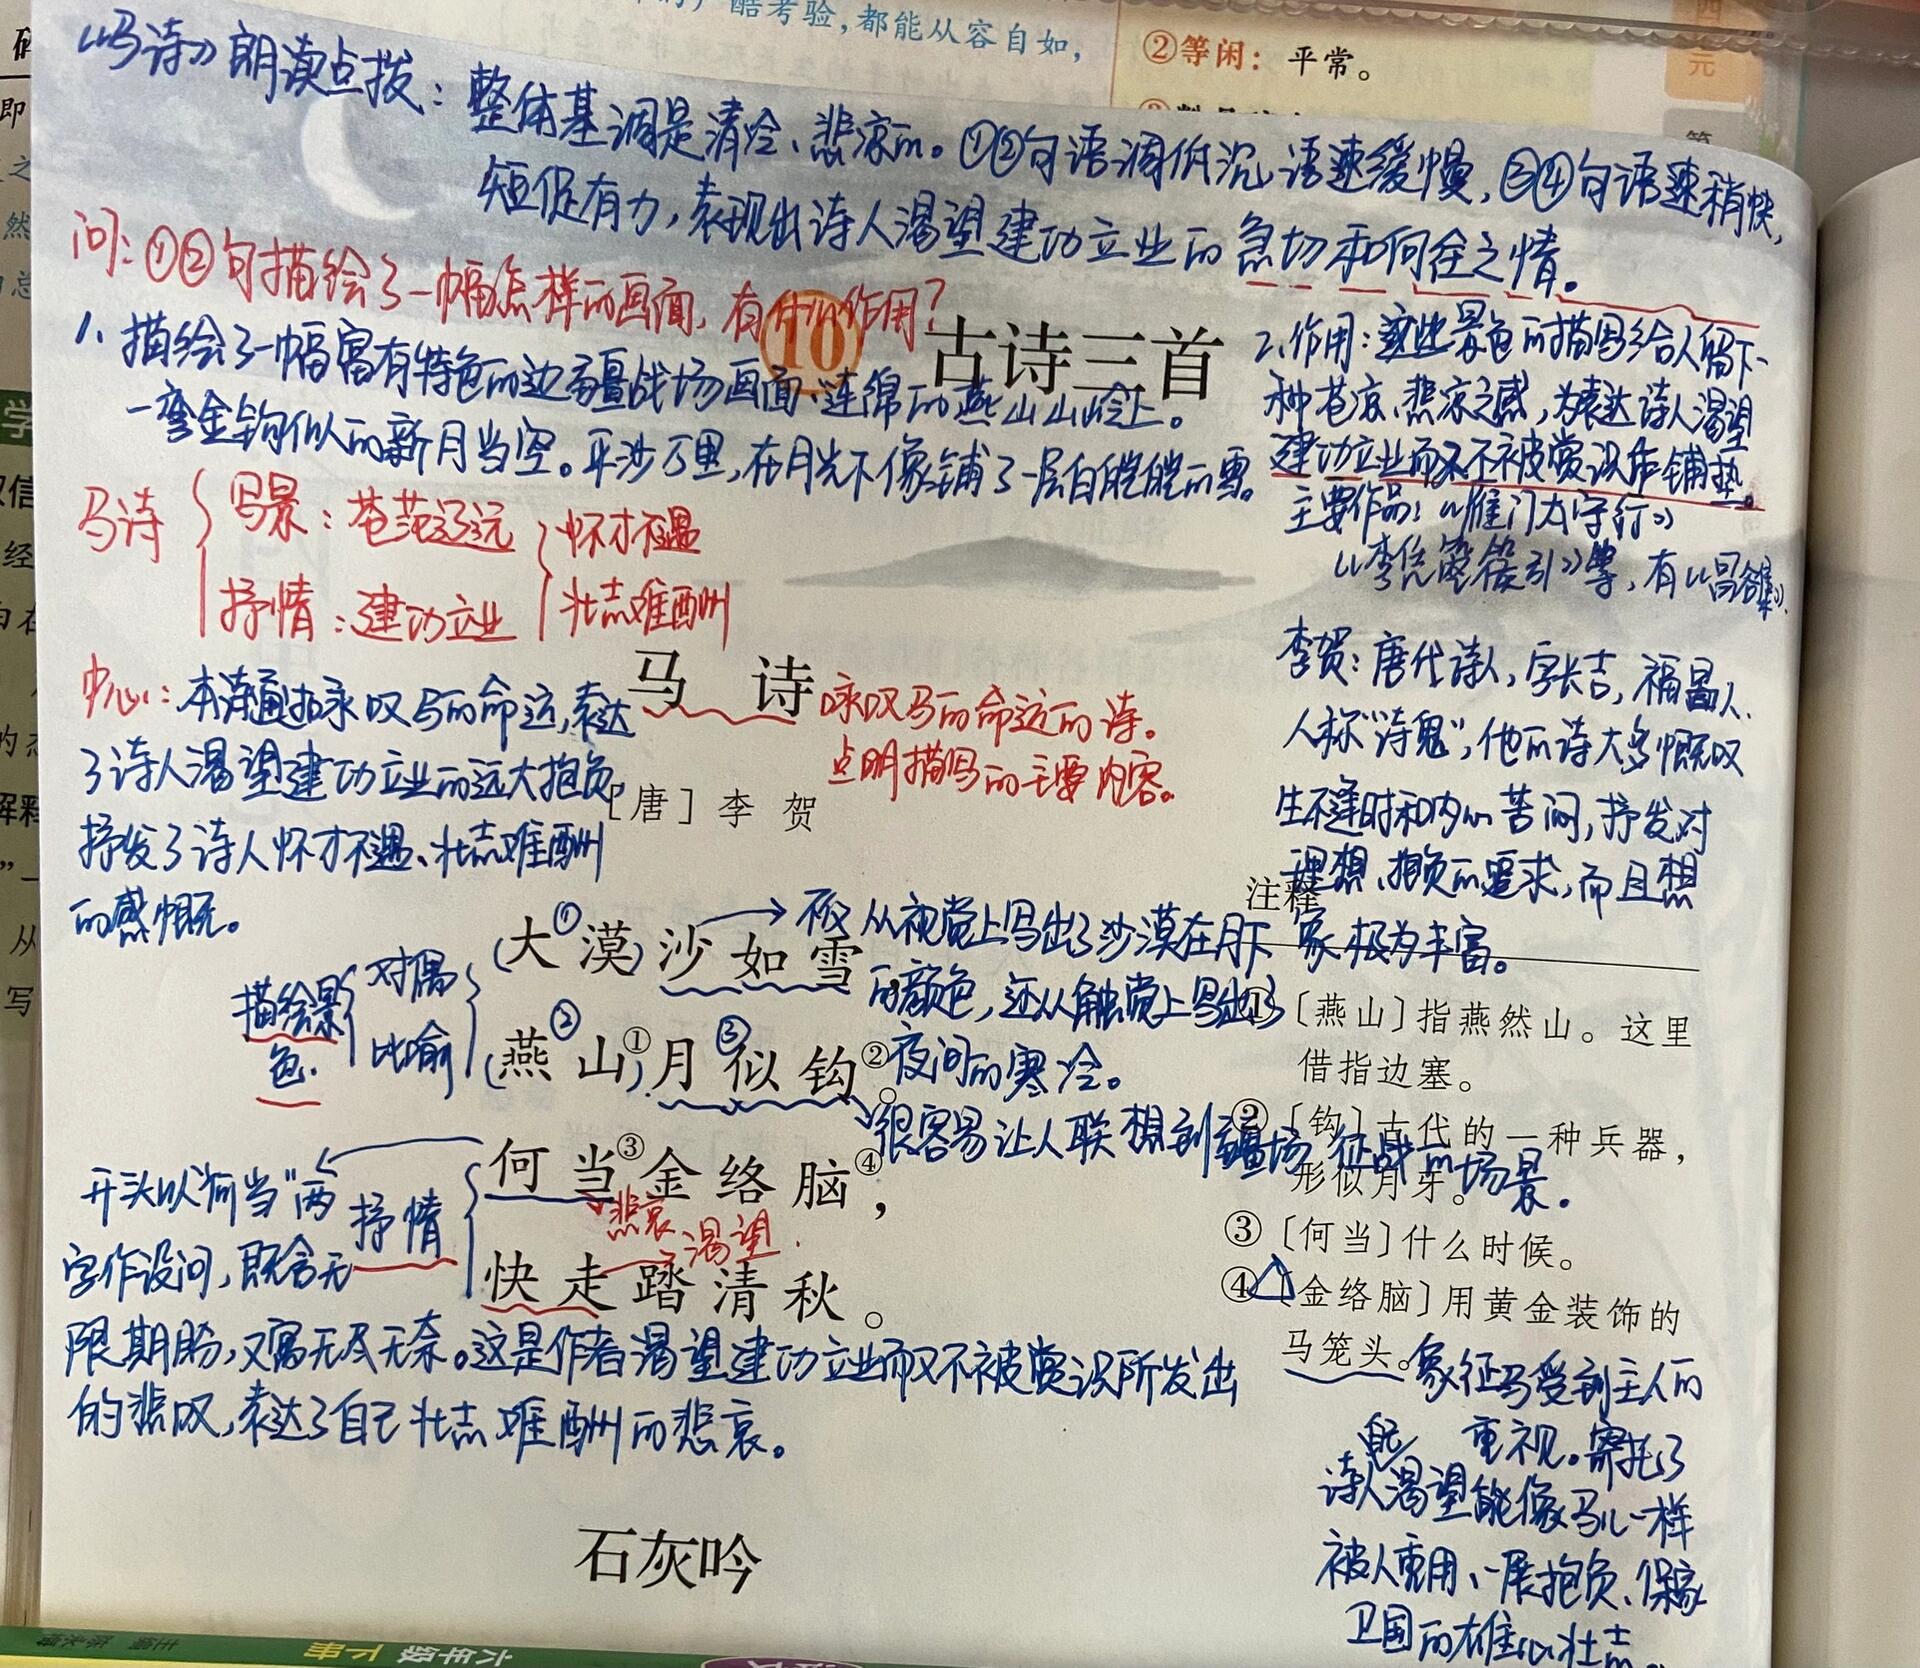 酷考验，都能从容自如，
②等闲：平常。
《马诗》朗读点拨：整体基调是清冷、悲凉的。①②句语调低沉，语速缓慢，③④句语速稍快，
短促有力，表现出诗人渴望建功立业的急切和何在之情。
问：①②句描绘了一幅怎样的画面，有什么作用？
10 古诗三首
1、描绘了一幅富有特色的边疆战场画面：连绵的燕山山岭上。
一弯金钩似的新月当空。平沙万里，在月光下像铺了一层白皑皑的雪。
2、作用：这些景色的描写给人留下一
种苍凉、悲凉之感，为表达诗人渴望
建功立业而又不被赏识作铺垫。
主要作品：《雁门太守行》
《李凭箜篌引》等，有《昌谷集》。
马诗
写景：苍茫辽远
抒情：建功立业
怀才不遇
壮志难酬
李贺：唐代诗人，字长吉，福昌人.
人称“诗鬼”，他的诗大多慨叹
生不逢时和内心苦闷，抒发对
理想、抱负的追求，而且想
象极为丰富。
中心：本诗通过咏叹马的命运，表达
了诗人渴望建功立业的远大抱负，
抒发了诗人怀才不遇、壮志难酬
的感慨。
马 诗
咏叹马的命运的诗。
点明描写的主要内容。
［唐］李 贺
(大①漠)沙如雪，
→不仅从视觉上写出了沙漠在月下
的颜色，还从触觉上写出了
夜间的寒冷。
描绘景
色.
对偶
比喻
(燕②山①)月③似钩②。
很容易让人联想到疆场征战的场景。
何当③金络脑④，
悲哀
渴望.
快走踏清秋。
抒情
开头以“何当”两
字作设问，既含无
限期盼，又寓无尽无奈。这是作者渴望建功立业而又不被赏识所发出
的悲叹，表达了自己壮志难酬的悲哀。
注释
①［燕山］指燕然山。这里
借指边塞。
②［钩］古代的一种兵器，
形似月牙。
③［何当］什么时候。
④［金络脑］用黄金装饰的
马笼头。
象征马受到主人的
重视。寄托了
自己
诗人渴望能像马儿一样
被人重用、一展抱负、保家
卫国的雄心壮志。
石灰吟
六年级 下册